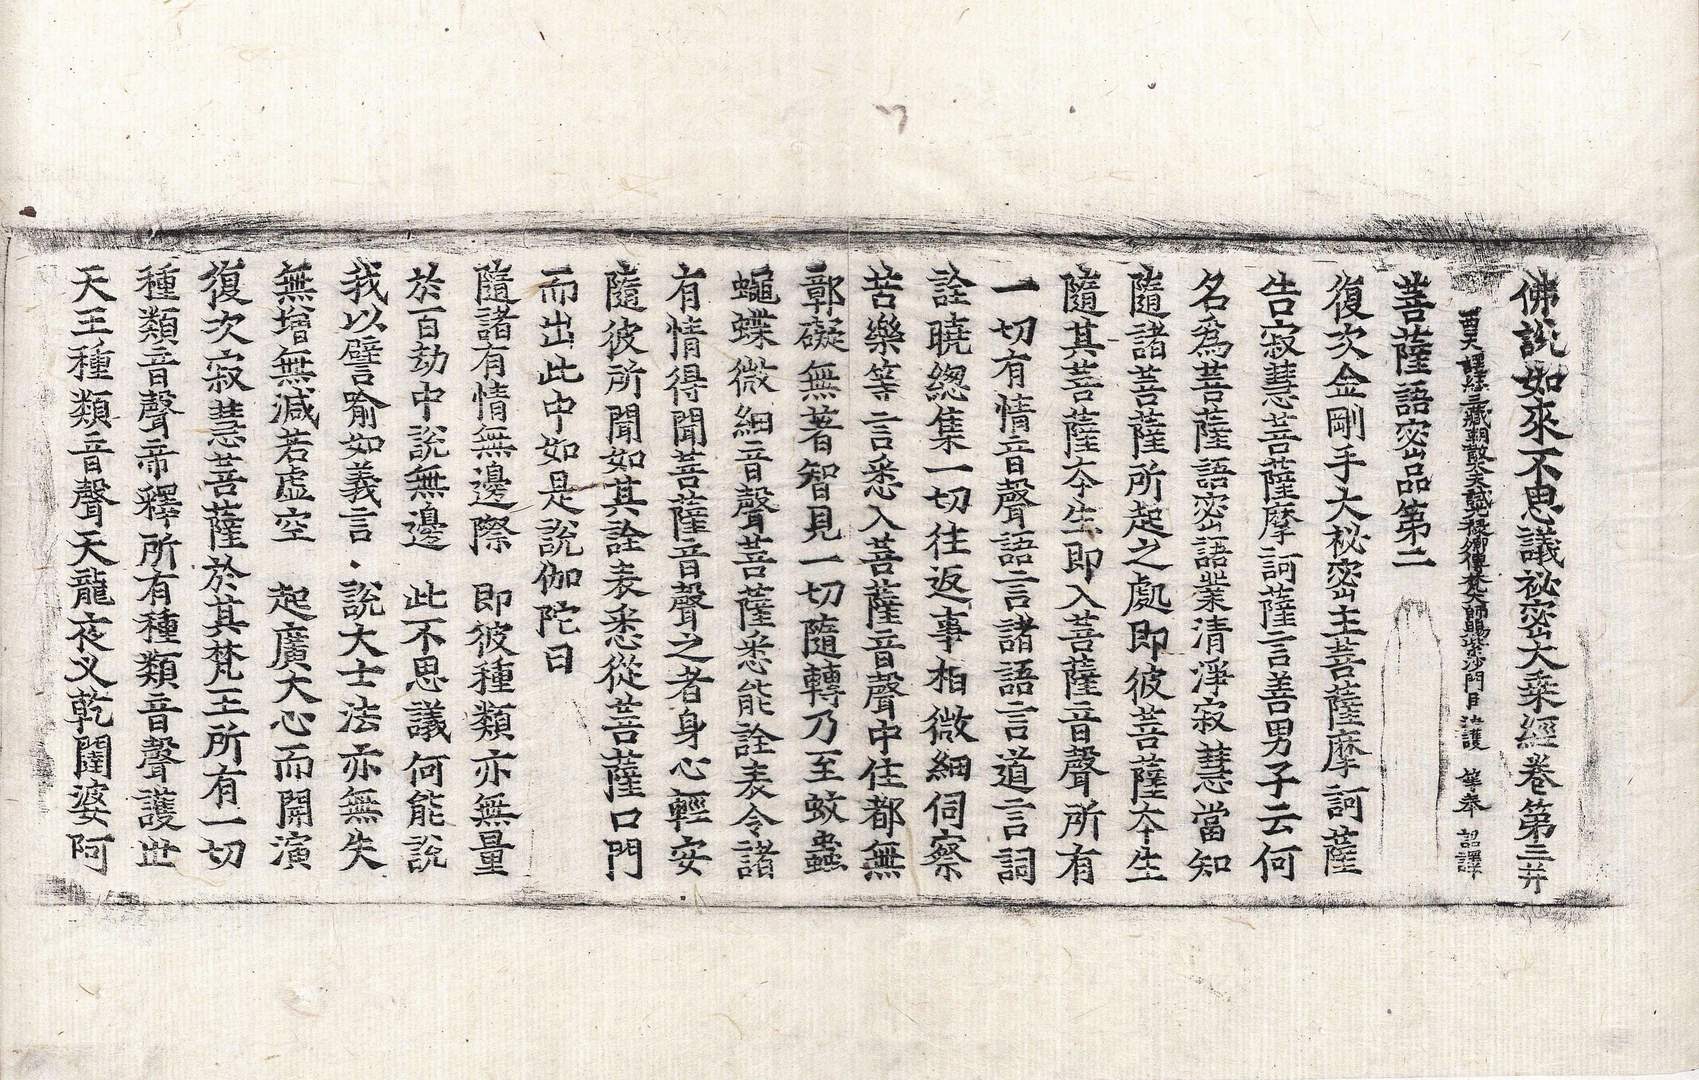 佛說如來不思議祕密大乘經卷第二 井
西天譯經三藏朝散大夫試光祿卿傳梵大師賜紫沙門臣法護 等奉 詔譯
菩薩語密品第二
復次金剛手大祕密主菩薩摩訶薩
告寂慧菩薩摩訶薩言善男子云何
名為菩薩語密語業清淨寂慧當知
隨諸菩薩所起之處即彼菩薩夲生
隨其菩薩夲生即入菩薩音聲所有
一切有情音聲語言諸語言道言詞
詮曉緫集一切往返事相微細伺察
苦樂等言悉入菩薩音聲中住都無
鄣礙無著智見一切隨轉乃至蚊蟲
蠅蝶微細音聲菩薩悉能詮表令諸
有情得聞菩薩音聲之者身心輕安
隨彼所聞如其詮表悉從菩薩口門
而出此中如是說伽陀曰
隨諸有情無邊際 即彼種類亦無量
於百劫中說無邊 此不思議何能說
我以譬喻如義言 說大士法亦無失
無增無減若虛空 起廣大心而開演
復次寂慧菩薩於其梵王所有一切
種類音聲帝釋所有種類音聲護世
天王種類音聲天龍夜叉乾闥婆阿